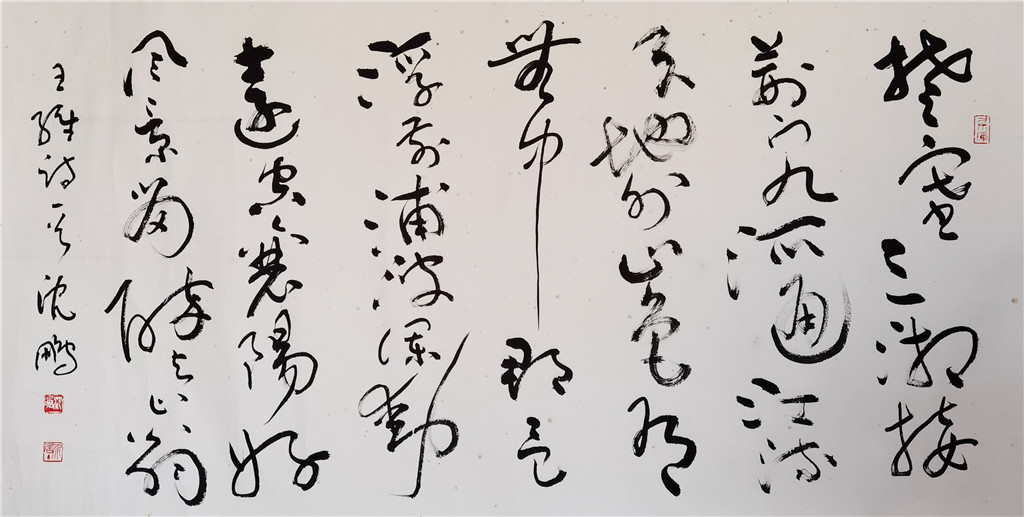 楚塞三湘接
荆门九派通江流
天地外山色有
無中郡邑
浮前浦波澜動
遠空襄陽好
风景留醉与山翁
王维诗一首 沈鹏